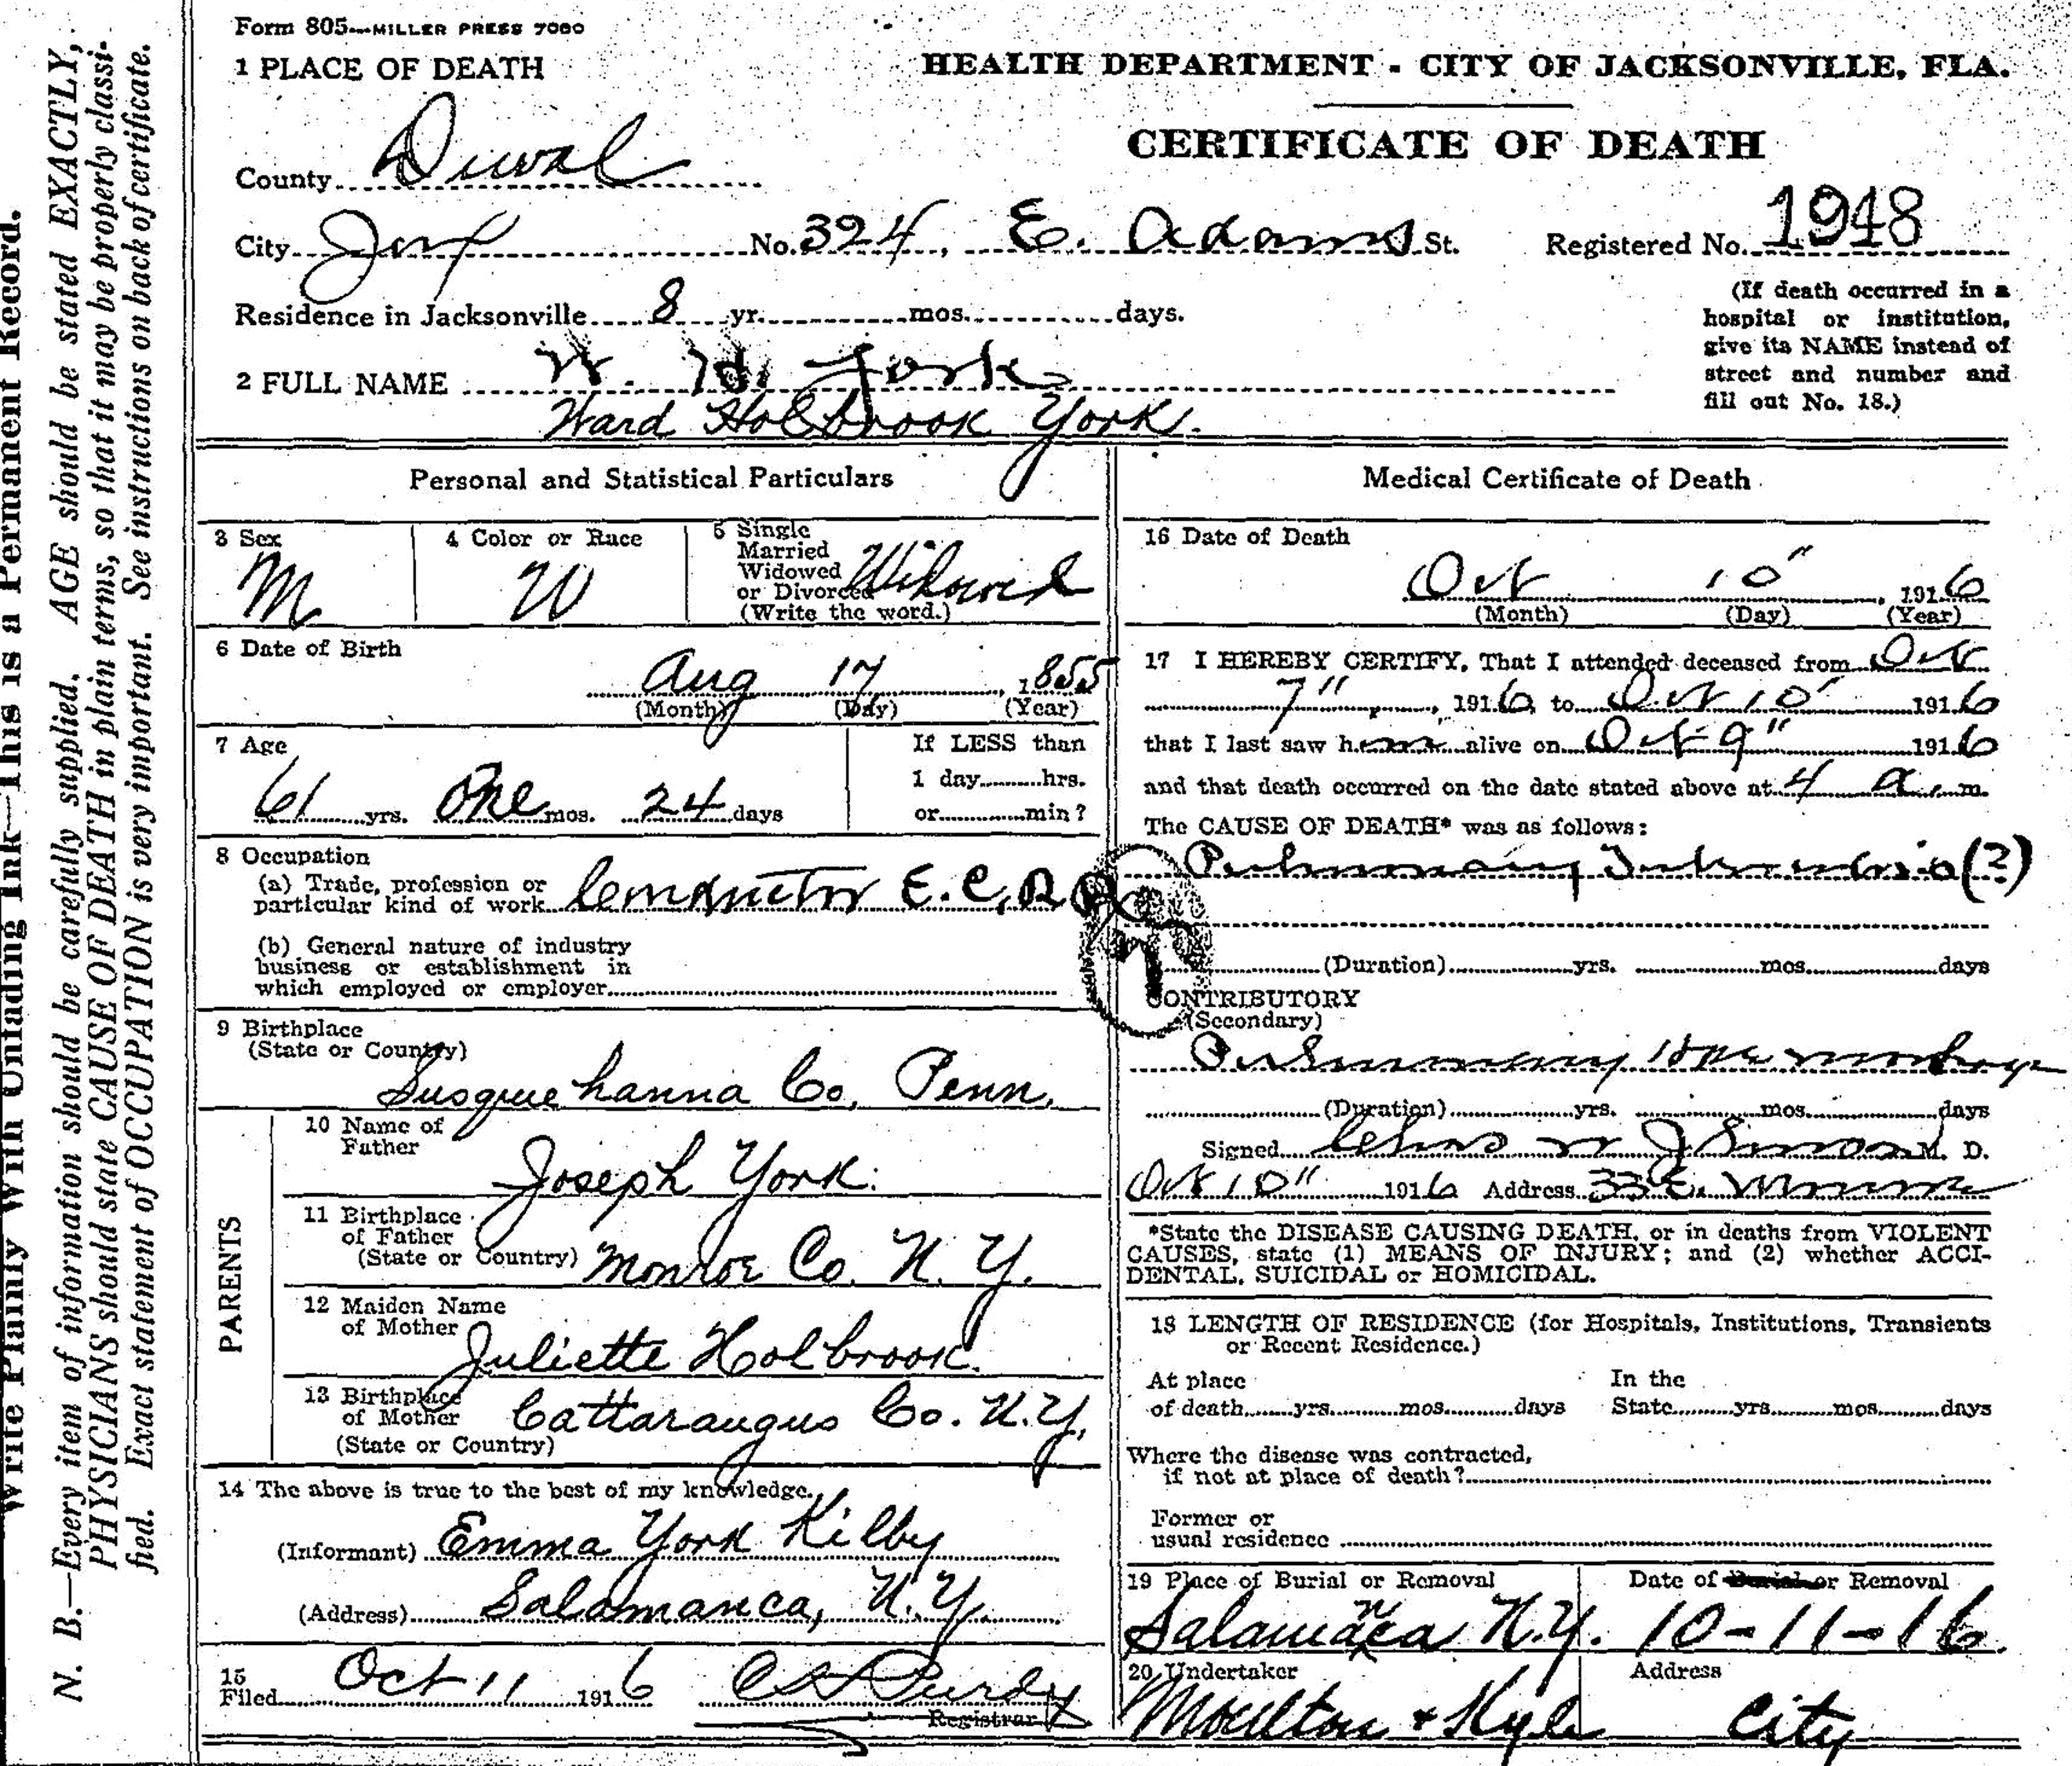 Form 805—MILLER PRESS 7060
HEALTH DEPARTMENT - CITY OF JACKSONVILLE, FLA.
CERTIFICATE OF DEATH
1 PLACE OF DEATH
County Duval
City Jax No. 324, E. Adams St. Registered No. 1948
(If death occurred in a
hospital or institution,
give its NAME instead of
street and number and
fill out No. 18.)
Residence in Jacksonville 8 yr. mos. days.
2 FULL NAME W. H. York
Ward Holbrook York.
Personal and Statistical Particulars
3 Sex
M
4 Color or Race
W
5 Single
Married
Widowed
or Divorced
(Write the word.)
Widowed
6 Date of Birth
Aug 17, 1855
(Month) (Day) (Year)
7 Age
61 yrs. One mos. 24 days
If LESS than
1 day hrs.
or min?
8 Occupation
(a) Trade, profession or
particular kind of work Conductor E. C. R R
(b) General nature of industry
business or establishment in
which employed or employer
9 Birthplace
(State or Country)
Susquehanna Co, Penn.
PARENTS
10 Name of
Father
Joseph York.
11 Birthplace
of Father
(State or Country) Monroe Co. N. Y.
12 Maiden Name
of Mother
Juliette Holbrook.
13 Birthplace
of Mother Cattaraugus Co. N.Y.
(State or Country)
14 The above is true to the best of my knowledge.
(Informant) Emma York Kilby
(Address) Salamanca, N.Y.
15
Filed Oct 11 1916 Purdy
Registrar
Medical Certificate of Death
16 Date of Death
Oct 10", 1916
(Month) (Day) (Year)
17 I HEREBY CERTIFY, That I attended deceased from Oct
7", 1916, to Oct 10" 1916
that I last saw him alive on Oct 9" 1916
and that death occurred on the date stated above at 4 a. m.
The CAUSE OF DEATH* was as follows:
Pulmonary Tuberculosis (?)
(Duration) yrs. mos. days
CONTRIBUTORY
(Secondary)
Pulmonary Hemorrhage
(Duration) yrs. mos. days
Signed M. D.
Oct 10" 1916 Address 33 E. Monroe
*State the DISEASE CAUSING DEATH, or in deaths from VIOLENT
CAUSES, state (1) MEANS OF INJURY; and (2) whether ACCI-
DENTAL, SUICIDAL or HOMICIDAL.
18 LENGTH OF RESIDENCE (for Hospitals, Institutions, Transients
or Recent Residence.)
At place
of death yrs. mos. days
In the
State yrs. mos. days
Where the disease was contracted,
if not at place of death?
Former or
usual residence
19 Place of Burial or Removal
Salamanca N.Y.
Date of Burial or Removal
10-11-16
20 Undertaker
Moulton & Kyle
Address
City
Write Plainly With Unfading Ink—This is a Permanent Record.
N. B.—Every item of information should be carefully supplied. AGE should be stated EXACTLY,
PHYSICIANS should state CAUSE OF DEATH in plain terms, so that it may be properly classi-
fied. Exact statement of OCCUPATION is very important. See instructions on back of certificate.